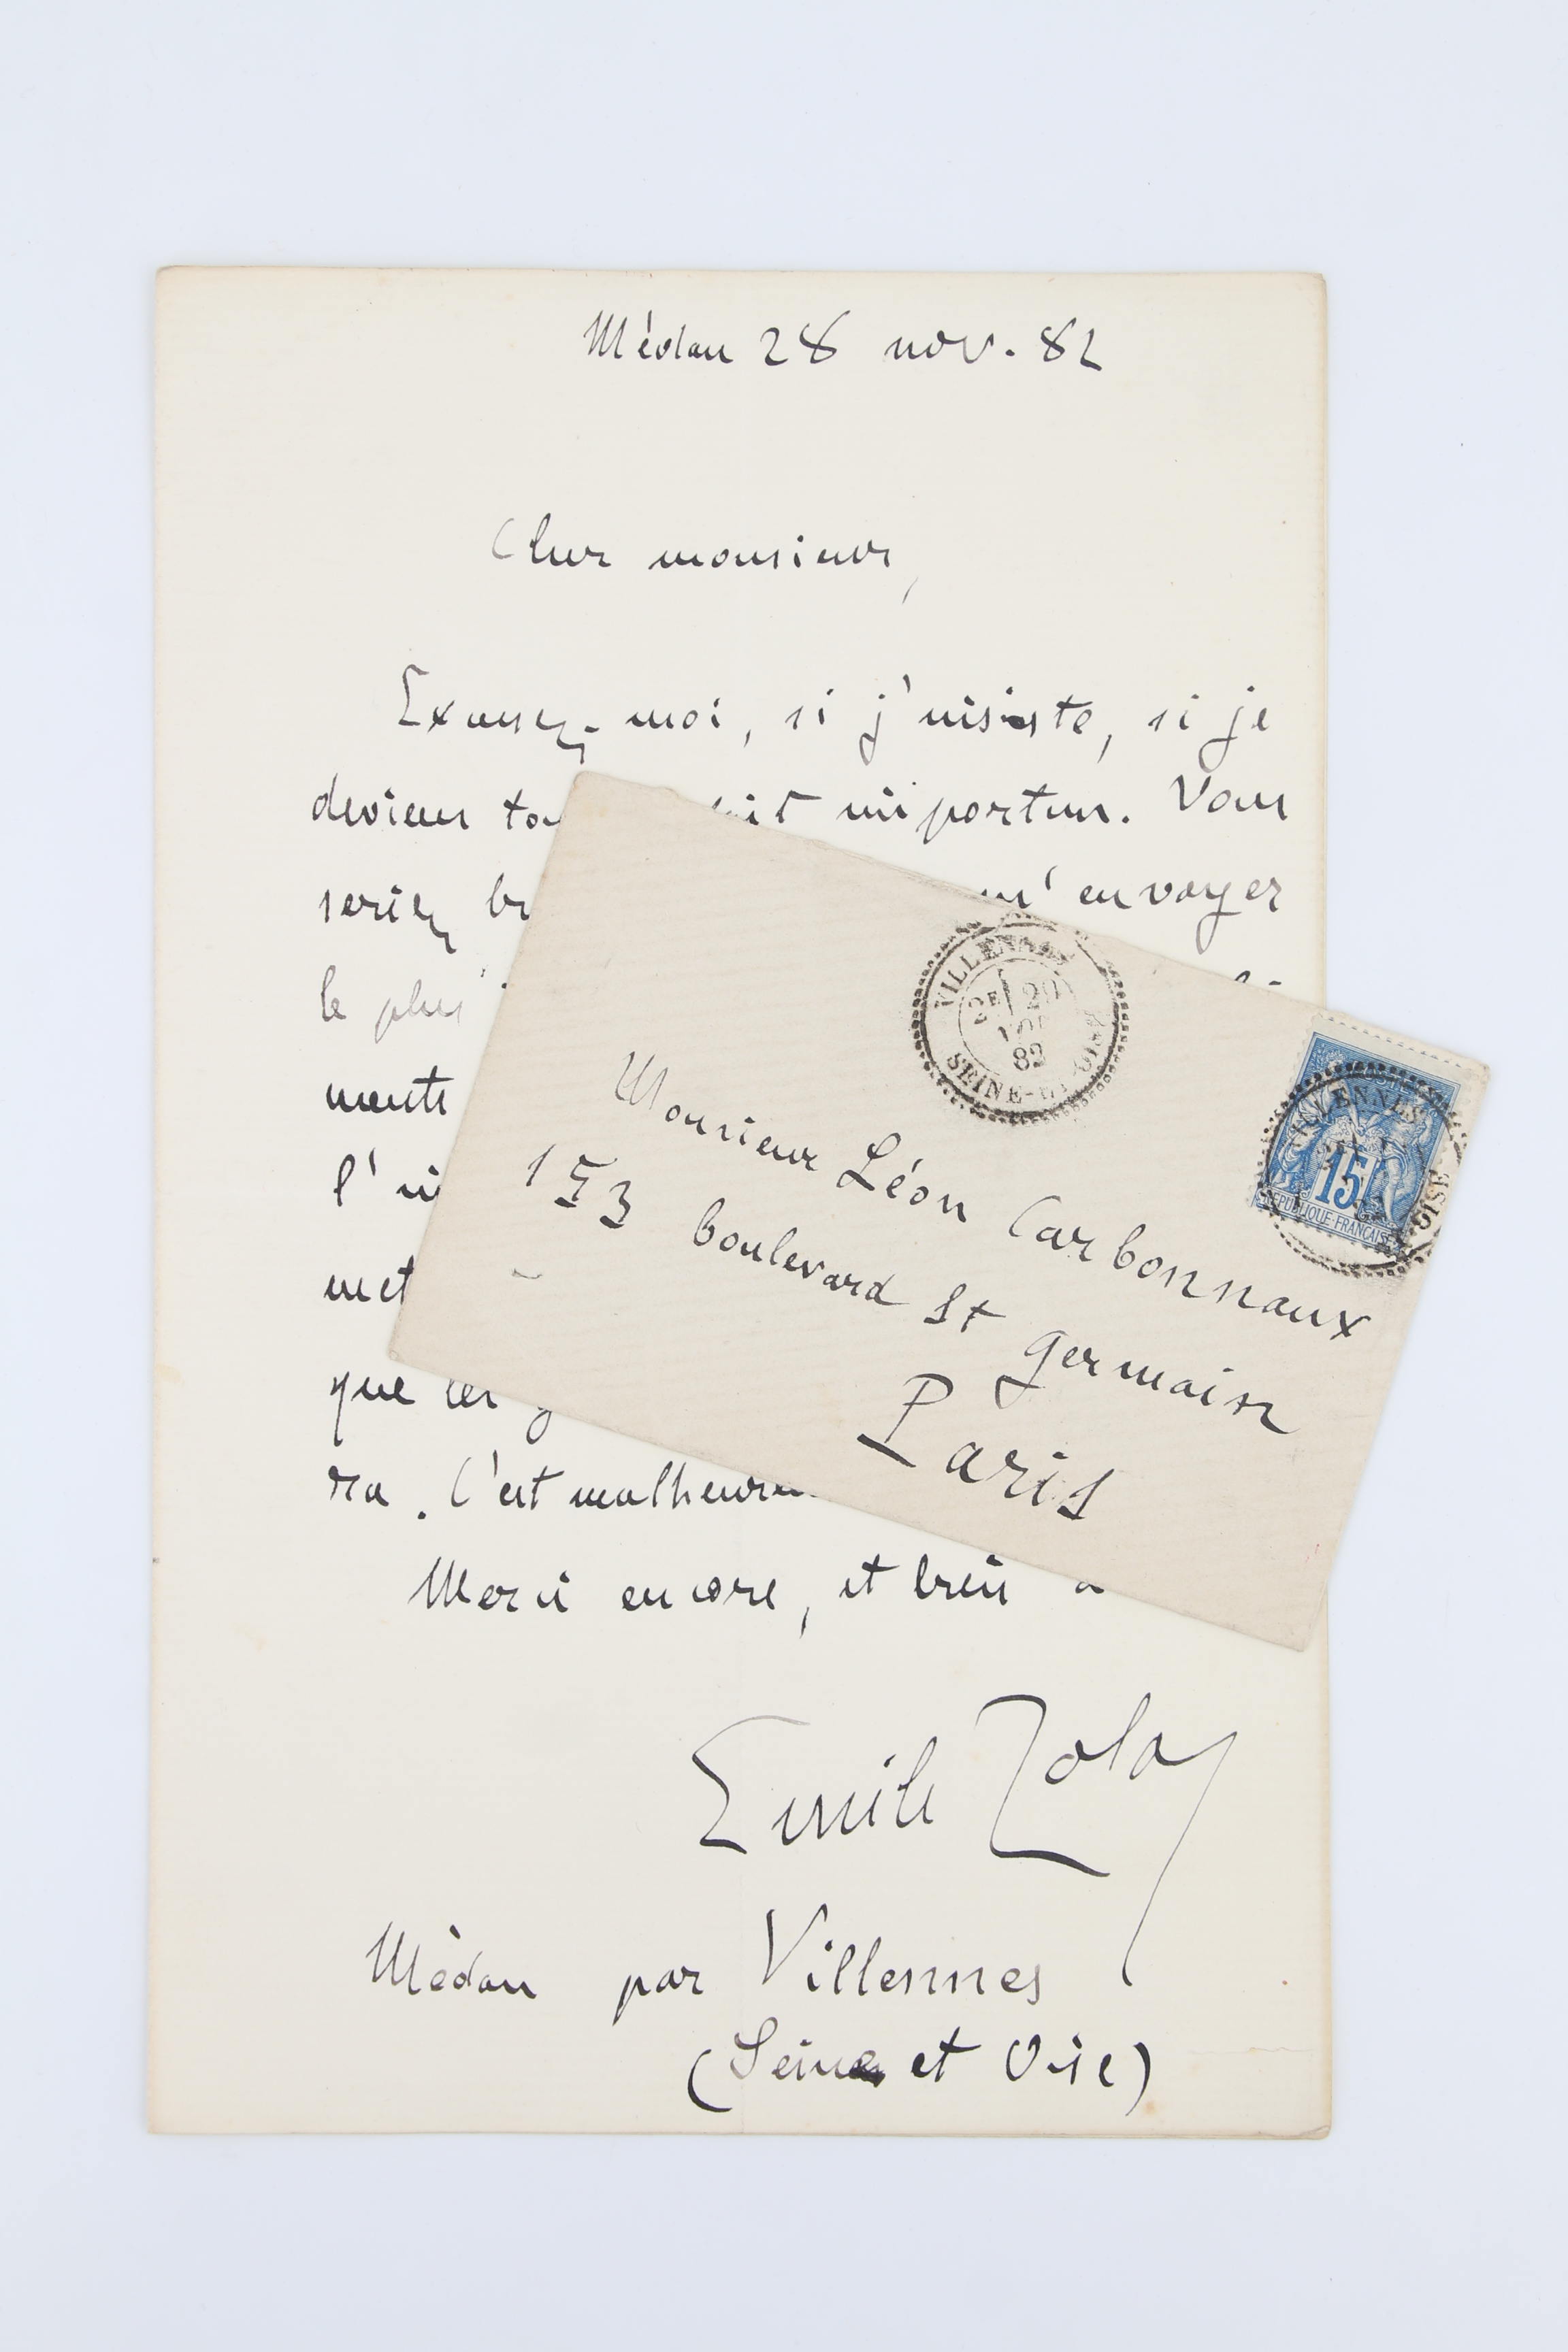 Médan 28 nov. 82
Cher monsieur,
Excusez-moi, si j'insiste, si je
deviens importun. Vous
seriez m'envoyer
le plus
l'
met
que les
ra. C'est
Merci encore, et bien à
Emile Zola
Médan par Villennes
(Seine et Oise)
VILLENNES
2E 29
NOV
82
SEINE-ET-OISE
Monsieur Léon Carbonnaux
153 boulevard St Germain
Paris
15
REPUBLIQUE FRANCAISE
VILLENNES
OISE